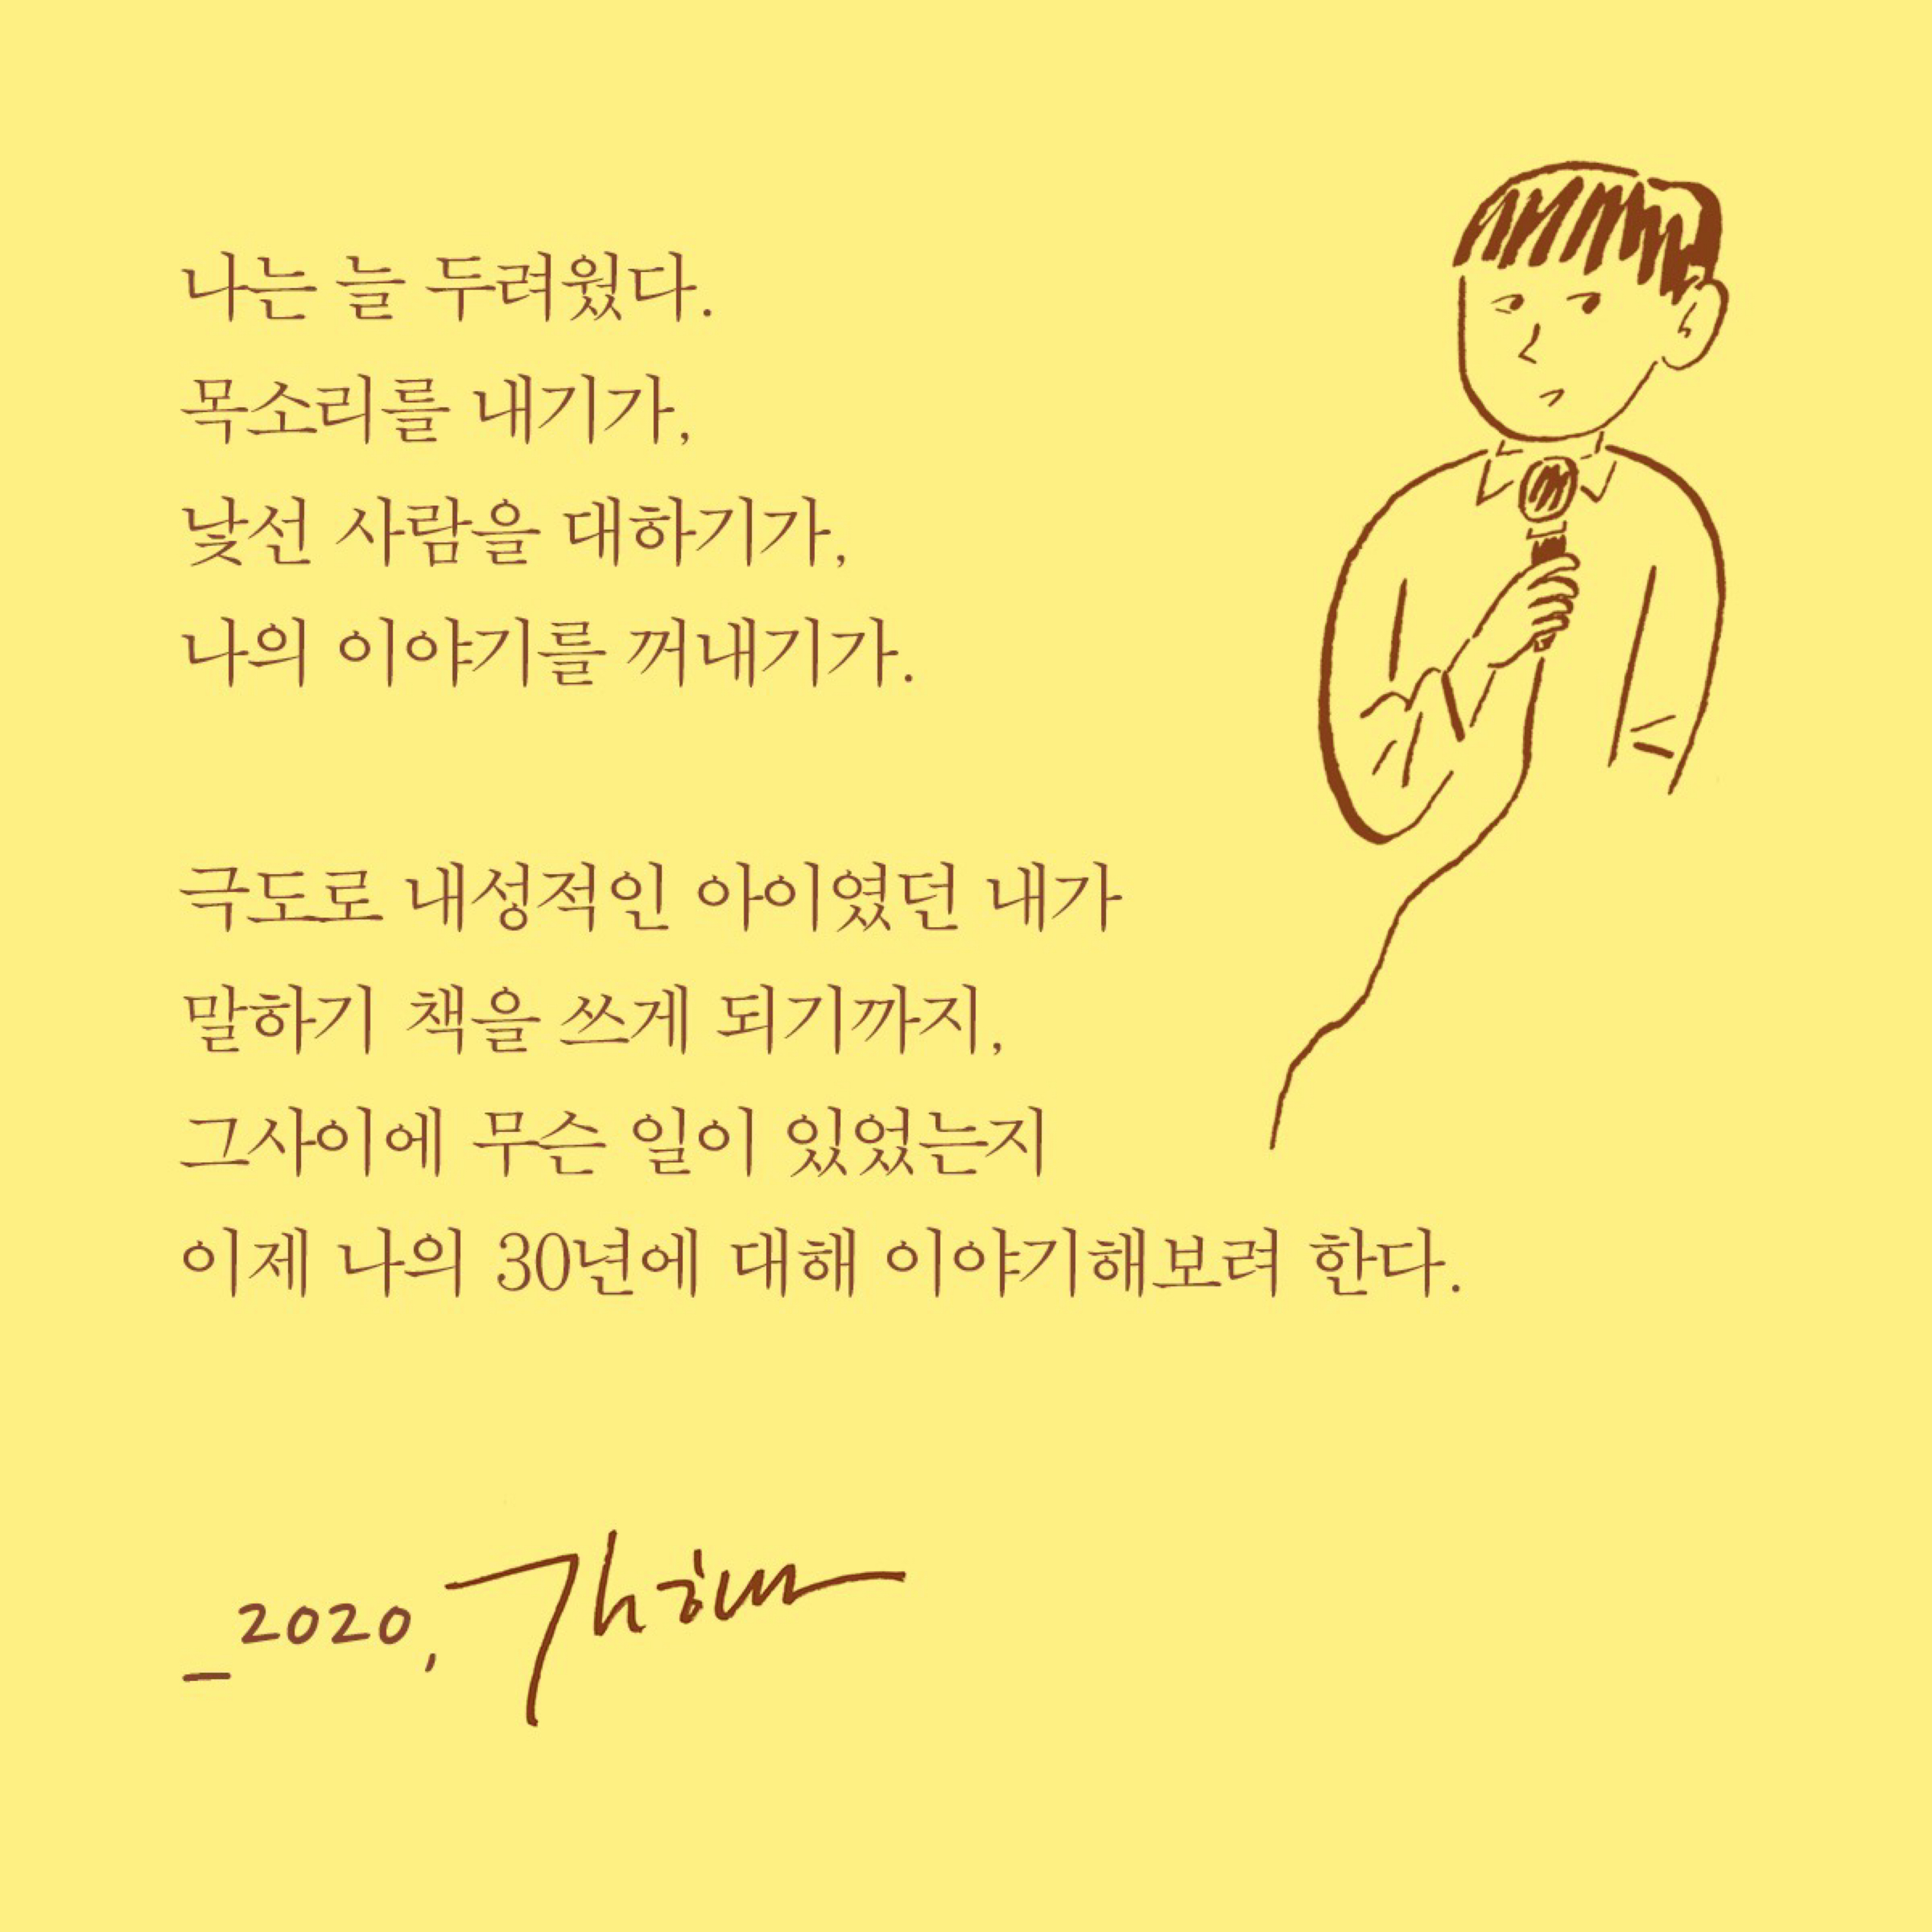 나는 늘 두려웠다.
목소리를 내기가,
낯선 사람을 대하기가,
나의 이야기를 꺼내기가.
극도로 내성적인 아이였던 내가
말하기 책을 쓰게 되기까지,
그사이에 무슨 일이 있었는지
이제 나의 30년에 대해 이야기해보려 한다.
_2020,